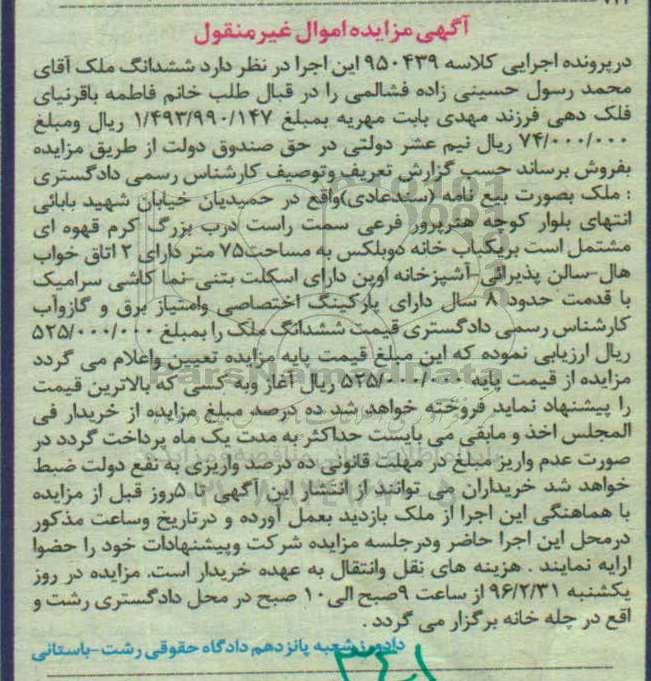 آگهی مزایده اموال غیر منقول
درپرونده اجرایی کلاسه ۹۵۰۴۳۹ این اجرا در نظر دارد ششدانگ ملک آقای
محمد رسول حسینی زاده فشالمی را در قبال طلب خانم فاطمه باقرنیای
فلک دهی فرزند مهدی بابت مهریه بمبلغ ۱/۴۹۳/۹۹۰/۱۴۷ ریال ومبلغ
۷۴/۰۰۰/۰۰۰ ریال نیم عشر دولتی در حق صندوق دولت از طریق مزایده
بفروش برساند حسب گزارش تعریف وتوصیف کارشناس رسمی دادگستری
: ملک بصورت بیع نامه (سندعادی)واقع در حمیدیان خیابان شهید بابائی
انتهای بلوار کوچه هنرپرور فرعی سمت راست درب بزرگ کرم قهوه ای
مشتمل است بریکباب خانه دوبلکس به مساحت۷۵ متر دارای ۲ اتاق خواب
هال-سالن پذیرائی-آشپزخانه اوپن دارای اسکلت بتنی-نما کاشی سرامیک
با قدمت حدود ۸ سال دارای پارکینگ اختصاصی وامتیاز برق و گازوآب
کارشناس رسمی دادگستری قیمت ششدانگ ملک را بمبلغ ۵۲۵/۰۰۰/۰۰۰
ریال ارزیابی نموده که این مبلغ قیمت پایه مزایده تعیین واعلام می گردد
مزایده از قیمت پایه ۵۲۵/۰۰۰/۰۰۰ ریال آغاز وبه کسی که بالاترین قیمت
را پیشنهاد نماید فروخته خواهد شد ده درصد مبلغ مزایده از خریدار فی
المجلس اخذ و مابقی می بایست حداکثر به مدت یک ماه پرداخت گردد در
صورت عدم واریز مبلغ در مهلت قانونی ده درصد واریزی به نفع دولت ضبط
خواهد شد خریداران می توانند از انتشار این آگهی تا ۵روز قبل از مزایده
با هماهنگی این اجرا از ملک بازدید بعمل آورده و درتاریخ وساعت مذکور
درمحل این اجرا حاضر ودرجلسه مزایده شرکت وپیشنهادات خود را حضوا
ارایه نمایند . هزینه های نقل وانتقال به عهده خریدار است. مزایده در روز
یکشنبه ۹۶/۲/۳۱ از ساعت ۹صبح الی۱۰ صبح در محل دادگستری رشت و
اقع در چله خانه برگزار می گردد .
دادورز شعبه پانزدهم دادگاه حقوقی رشت-باستانی
ParsNamadData